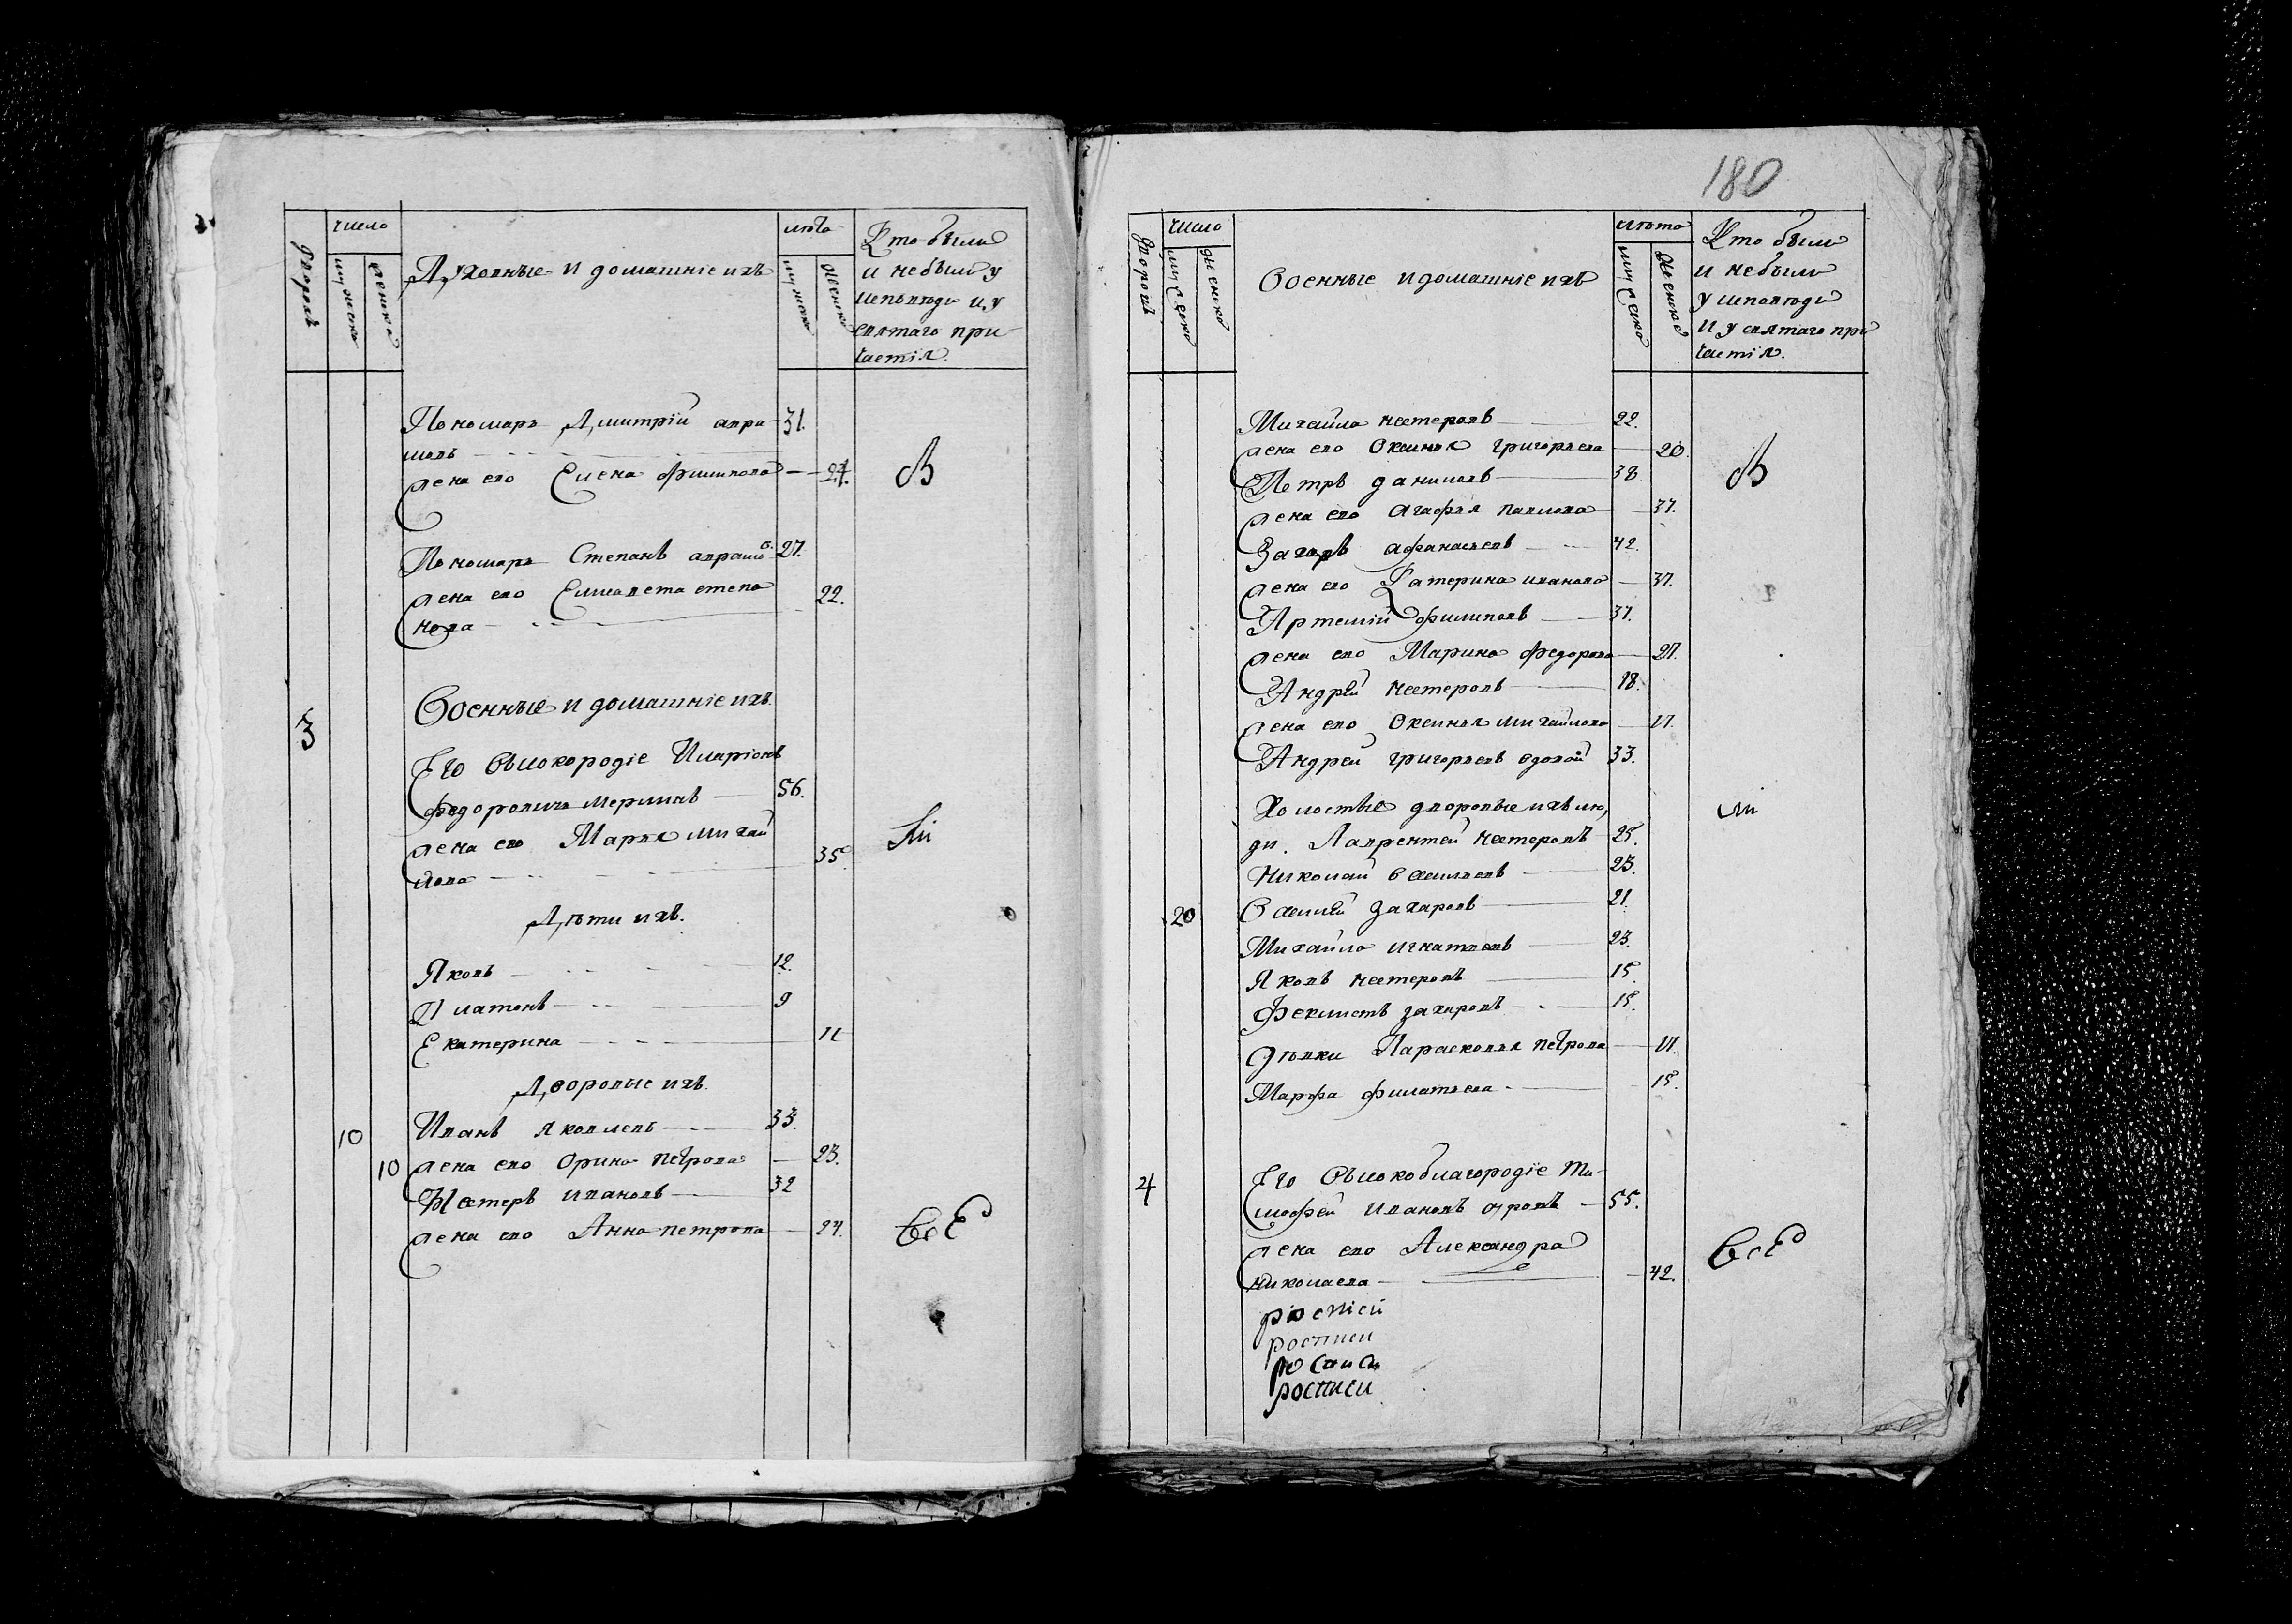 число
лѣта
Кто были
дворовъ
мужеска
женска
Духовные и домашніе ихъ
мужеска
женска
и небыли у
исповѣди и у
святаго при
частія.
Пономарь Дмитрій авра 31.
мовъ
жена его Елена филипова
В
Пономарь Степанъ аврамо. 27.
жена его Елисавета степа 22.
нова
3
Военные и домашніе ихъ.
Его Высокородіе Иларіонъ
федоровичь меринъ 56.
Ли
жена его Марья михай
лова 35
Дѣти ихъ.
Яковъ 12.
Платонъ 9
Екатерина 11
Дворовые ихъ.
10 Иванъ яковлевъ 33.
10 жена его Орина петрова 23.
Нестеръ ивановъ 32
жена его Анна петрова 24. ВсЕ
180
число
лѣта
Кто были
дворовъ
мужеска
женска
Военные и домашніе ихъ
мужеска
женска
и небыли
у исповѣди
и у святаго при
частія.
Михайла нестеровъ 22.
жена его Оксинья григорьева 20.
Петръ даниловъ 38
В
жена его Агафья павлова 37.
Захаръ афанасьевъ 42.
жена его Катерина иванова 37.
Артемій филиповъ 37.
жена его Марина федорова 27.
Андрѣй нестеровъ 18.
жена его Оксинья михайлова 17.
Андрей григорьевъ вдовой 33.
Холостые дворовые ихъ лю,
ли
ди. Лаврентей нестеровъ 25.
Николай васильевъ 23.
20 Василѣй захаровъ 21.
Михайла игнатьевъ 23.
Яковъ нестеровъ 15.
Феклистъ захаровъ 15.
дѣвки Парасковья петрова 17.
Марфа филатьева 15.
4 Его Высокоблагородіе ти-
мофей ивановъ 55.
жена его Александра
ВсЕ
николаева 42.
росписи
росписи
росписи
росписи